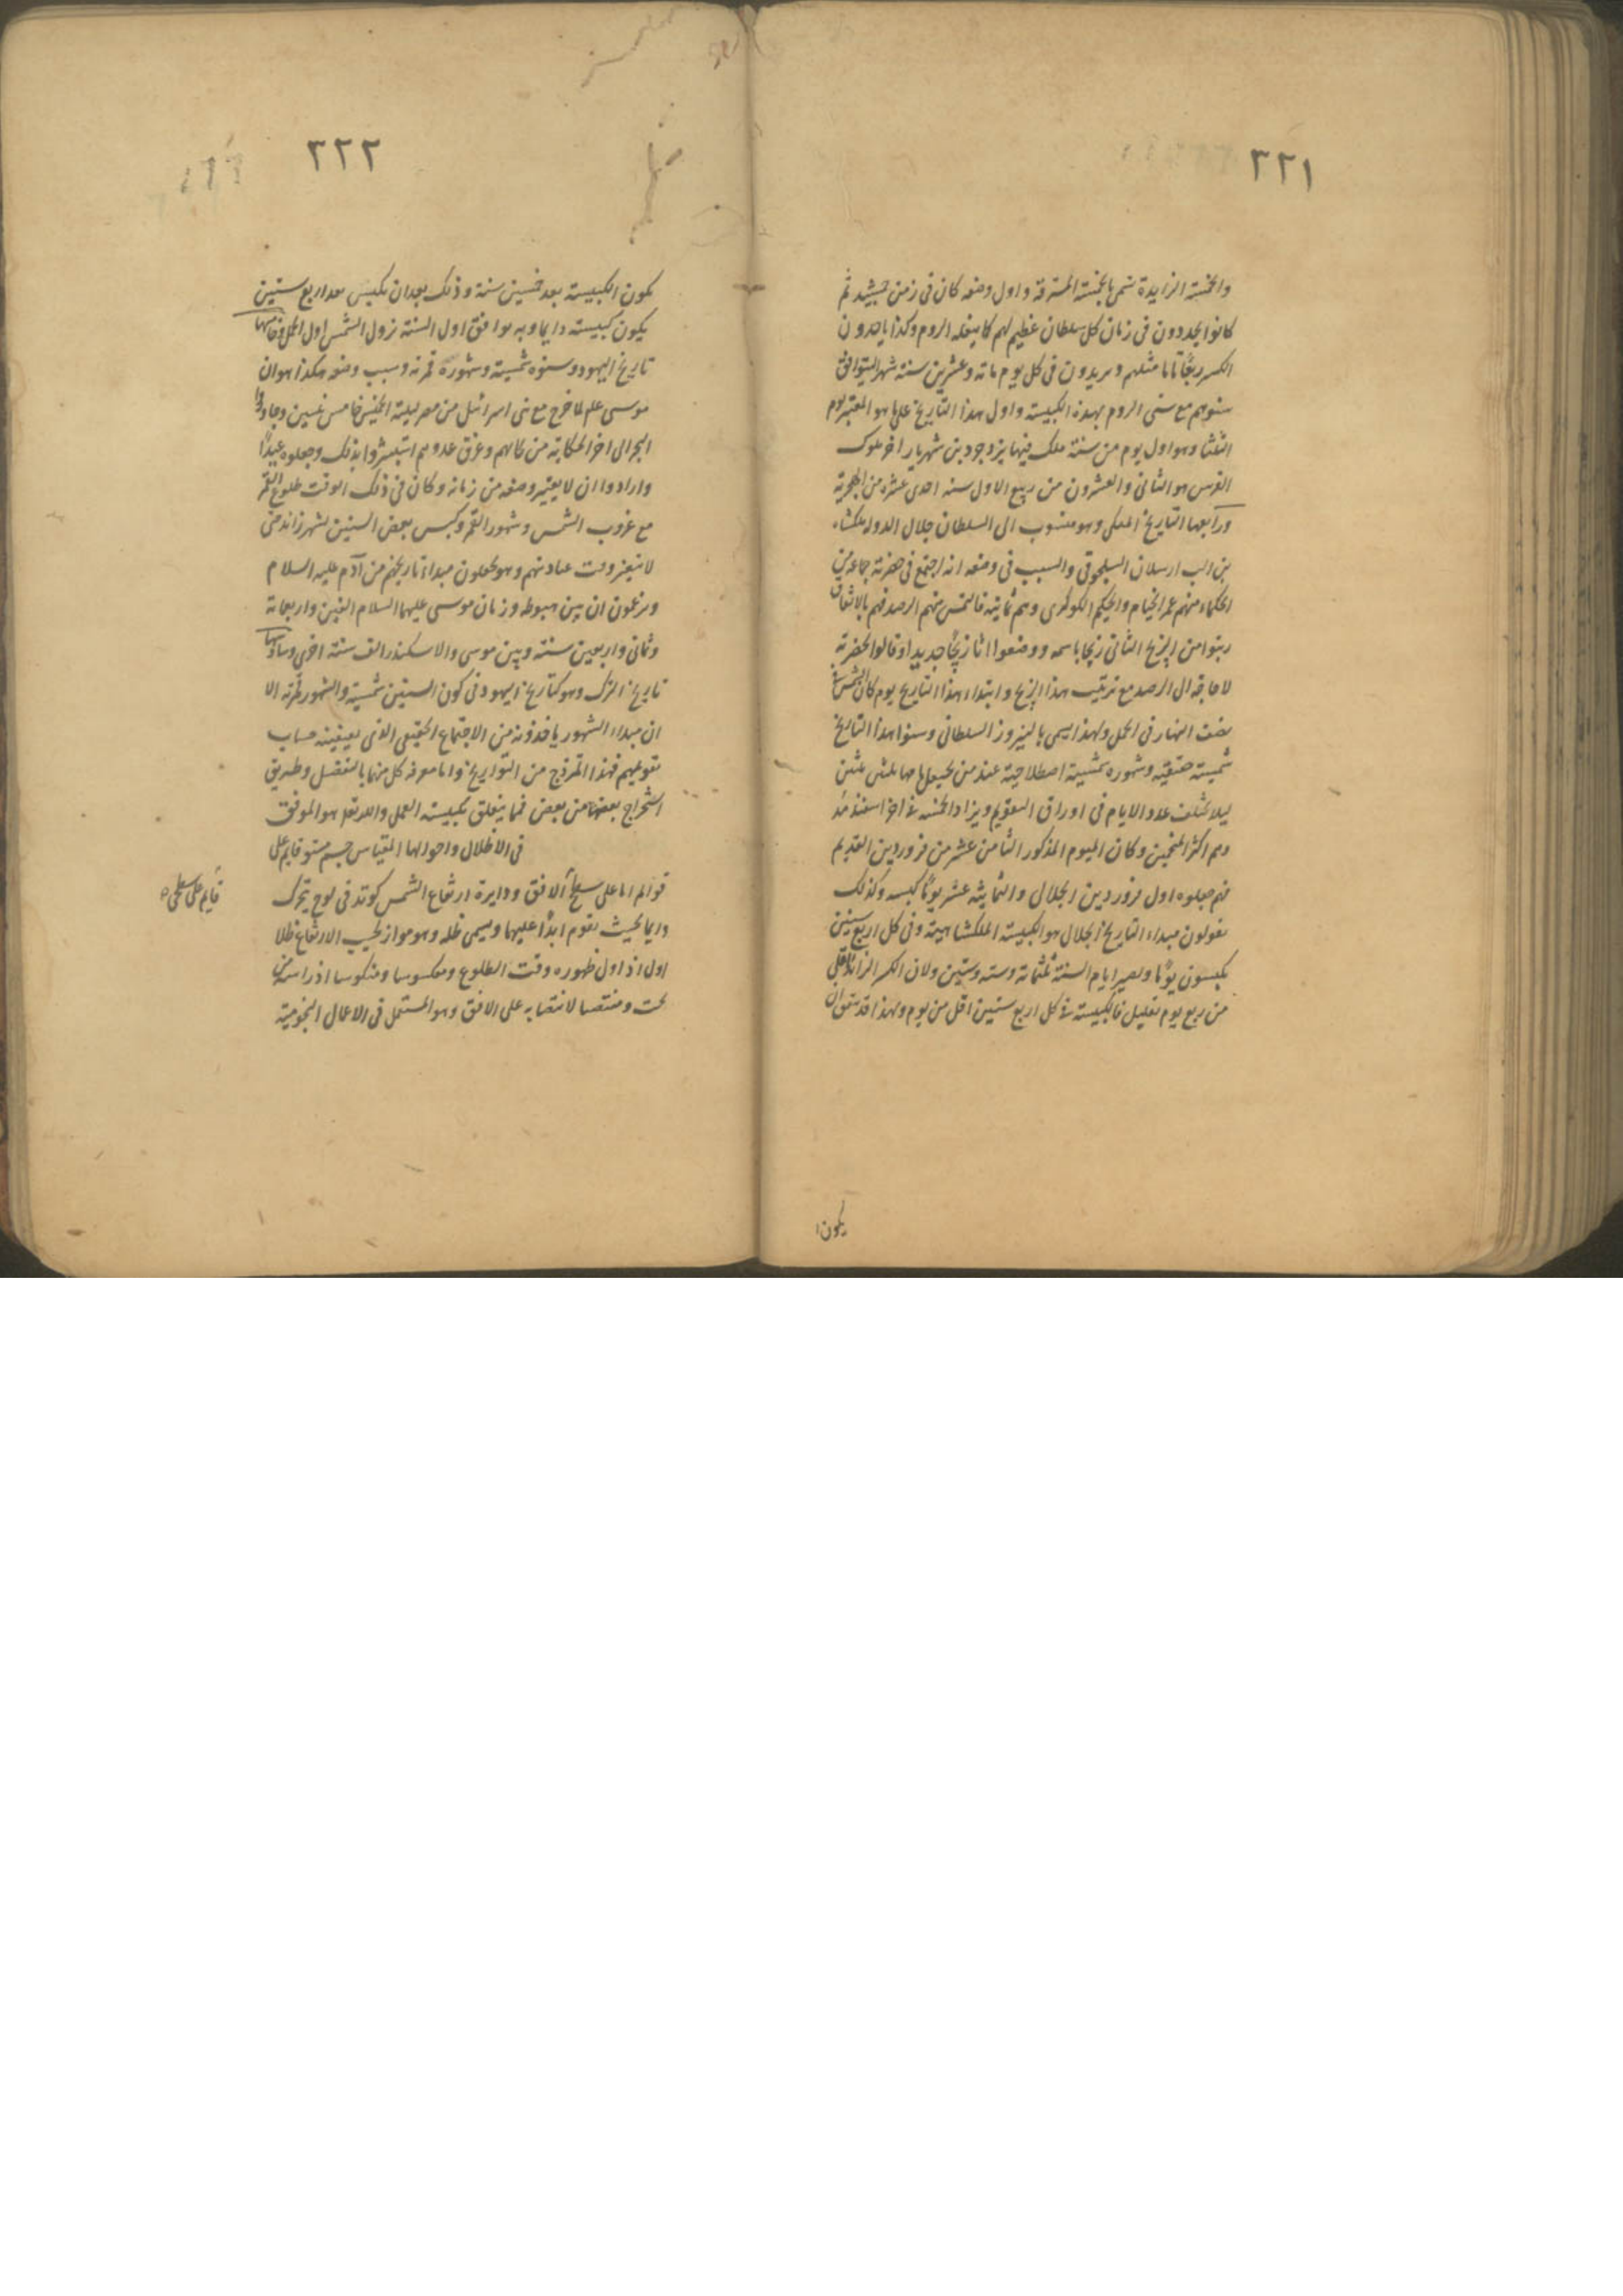 ٣٢١
والخمسة الزايدة تسمى بالخمسة المسترقة واول وضعه كان فى زمن جمشيد ثم
كانوا يجددون فى زمان كل سلطان عظيم لهم كما يفعله الروم وكذا ياخذون
الكسر ربعًا تاما مثلهم ويزيدون فى كل يوم مائة وعشرين سنة شهرا ليتوافق
سنوهم مع سنى الروم بهذه الكبيسة واول هذا التاريخ على ما هو المعتبر يوم
الثلثا وهو اول يوم من سنة ملك فيها يزدجرد بن شهريار اخر ملوك
الفرس هو الثانى والعشرون من ربيع الاول سنه احدى عشره من الهجرية
ورابعها التاريخ الملكى وهو منسوب الى السلطان جلال الدوله ملكشاه
بن الب ارسلان السلجوقى والسبب فى وضعه انه اجتمع فى حضرته جماعة من
الحكماء منهم عمر الخيام والحكيم اللوكرى وهم ثمانية فالتمس منهم الرصد فهم بالاتفاق
رتبوا من الزيج الثانى زيجا باسمه ووضعوا تاريخًا جديدا وقالوا لحضرته
لا حاجة الى الرصد مع ترتيب هذا الزيج وابتداء هذا التاريخ يوم كان الشمس فى
نصف النهار فى الحمل ولهذا يسمى بالنيروز السلطانى وسنوا هذا التاريخ
شمسية حقيقيه وشهوره شمسية اصطلاحية عند من يجعلها ثلثين ثلثين
ليلا يختلف عدد الايام فى اوراق التقويم ويزاد الخمسه فى اخر اسفندارمذ
وهم اكثر المنجمين وكان اليوم المذكور الثامن عشر من فروردين القديم
فهم جعلوه اول فروردين الجلالى والثمانية عشر يومًا كبيسه وكذلك
يقولون مبداء التاريخ الجلالى هو الكبيسته الملكشاهية وفى كل اربع سنين
يكبسون يومًا ويصير ايام السنة ثلثمائة وستة وستين ولان الكسر الزائد اقل
من ربع يوم بقليل فالكبيسته فى كل اربع سنين اقل من يوم ولهذا قد يتفق ان
يكون
٣٢٢
يكون الكبيسته بعد خمسين سنة وذلك بعد ان يكبس بعد اربع سنين
يكون كبيسته دايما وبه يوافق اول السنة نزول الشمس اول الحمل وخامسها
تاريخ اليهود وسنوه شمسية وشهوره قمرية وسبب وضعه هكذا هو ان
موسى علم لما خرج مع بنى اسرائيل من مصر ليلة الخميس خامس نيسن وجاوزوا
البحر الى اخر الحكاية من كمالهم وغرق عدوهم استبشروا بذلك وجعلوه عيدًا
وارادوا ان لا يتغير وضعه من زمانه وكان فى ذلك الوقت طلوع القمر
مع غروب الشمس وشهور القمر وكبس بعض السنين بشهر زائد حتى
لا يتغير وقت عباداتهم وهو يجعلون مبداء تاريخهم من آدم عليه السلام
ويزعمون ان بين هبوطه وزمان موسى عليهما السلام الفين واربعمائة
وثمانى واربعين سنة وبين موسى والاسكندر الف سنة اخرى وسادسها
تاريخ الترك وهو كتاريخ اليهود فى كون السنين شمسية والشهور قمرية الا
ان مبداء الشهور ياخذونه من الاجتماع الحقيقى الذى يعينه حساب
تقويمهم فهذا انموذج من التواريخ واما معرفه كل منها بالتفصيل وطريق
استخراج بعضها من بعض فما يتعلق بكبيسته العمل والله تعلى هو الموفق
فى الاظلال واحوالها المقياس جسم مستو قايم على
قوائم اما على سطح الافق ودايرة ارتفاع الشمس كوتد فى لوح يتحرك
دايما بحيث يقوم ابدًا عليها ويسمى ظله وهو مواز لجيب الارتفاع ظلا
اول اذ اول ظهوره وقت الطلوع ومعكوسا ومنكوسا اذ راسه من
تحت ومنتصبا لانتصابه على الافق وهو المستعمل فى الاعمال النجومية
قايم على سطحى